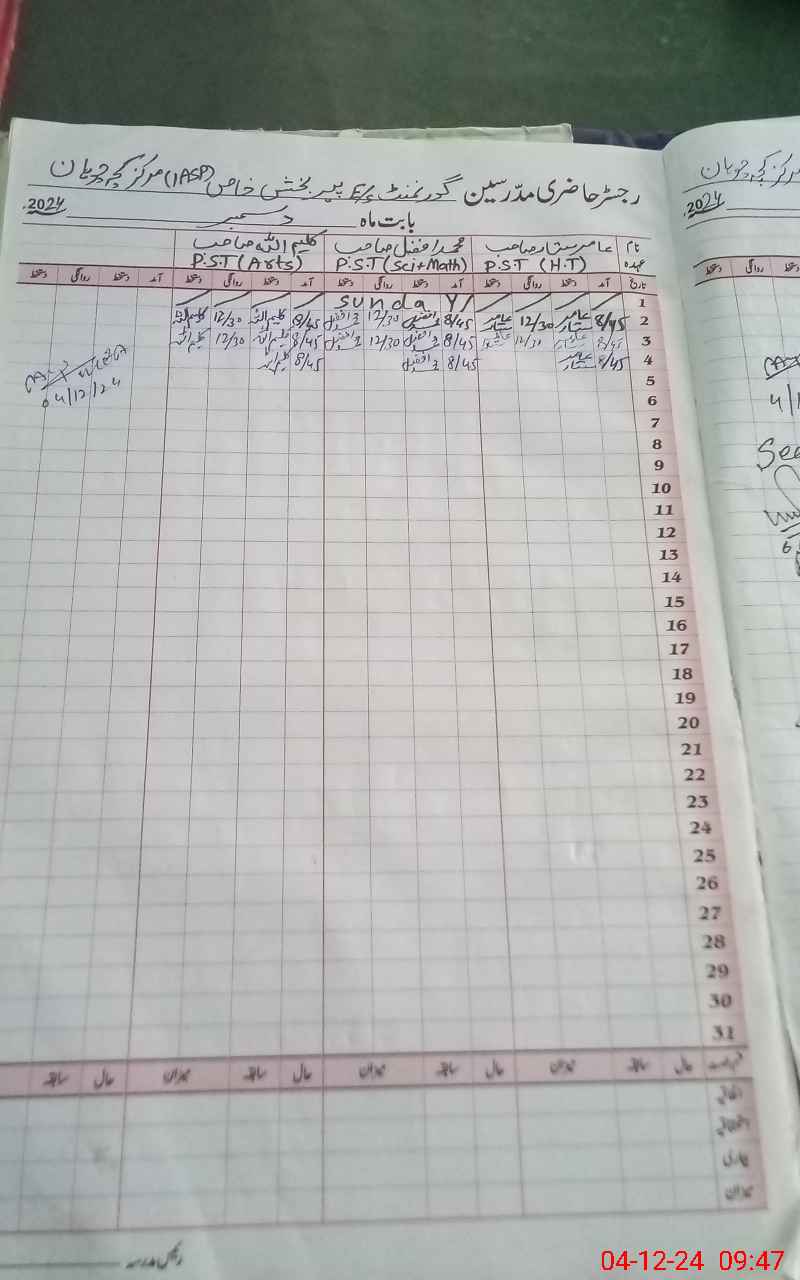 رجسٹر حاضری مدرسین گورنمنٹ E/S پیر بخش خاص (IASP) مرکز کچہ چوہان
بابت ماہ دسمبر 2024
نام عامر ستار صاحب محمد افضل صاحب کلیم اللہ صاحب
عہدہ P.S.T (H.T) P.S.T (Sci+Math) P.S.T (Arts)
تاریخ آمد دستخط روانگی دستخط آمد دستخط روانگی دستخط آمد دستخط روانگی دستخط آمد دستخط روانگی دستخط
1 Sunday
2 8/45 عامر ستار 12/30 عامر ستار 8/45 محمد افضل 12/30 محمد افضل 8/45 کلیم اللہ 12/30 کلیم اللہ
3 8/45 عامر ستار 12/30 عامر ستار 8/45 محمد افضل 12/30 محمد افضل 8/45 کلیم اللہ 12/30 کلیم اللہ
4 8/45 عامر ستار 8/45 محمد افضل 8/45 کلیم اللہ
04/12/24
5
6
7
8
9
10
11
12
13
14
15
16
17
18
19
20
21
22
23
24
25
26
27
28
29
30
31
حال سابقہ میزان حال سابقہ میزان حال سابقہ میزان حال سابقہ
اتفاقیہ
استحقاقیہ
بیماری
میزان
رئیس مدرسہ
2024
دستخط روانگی
4/1
See
04-12-24 09:47